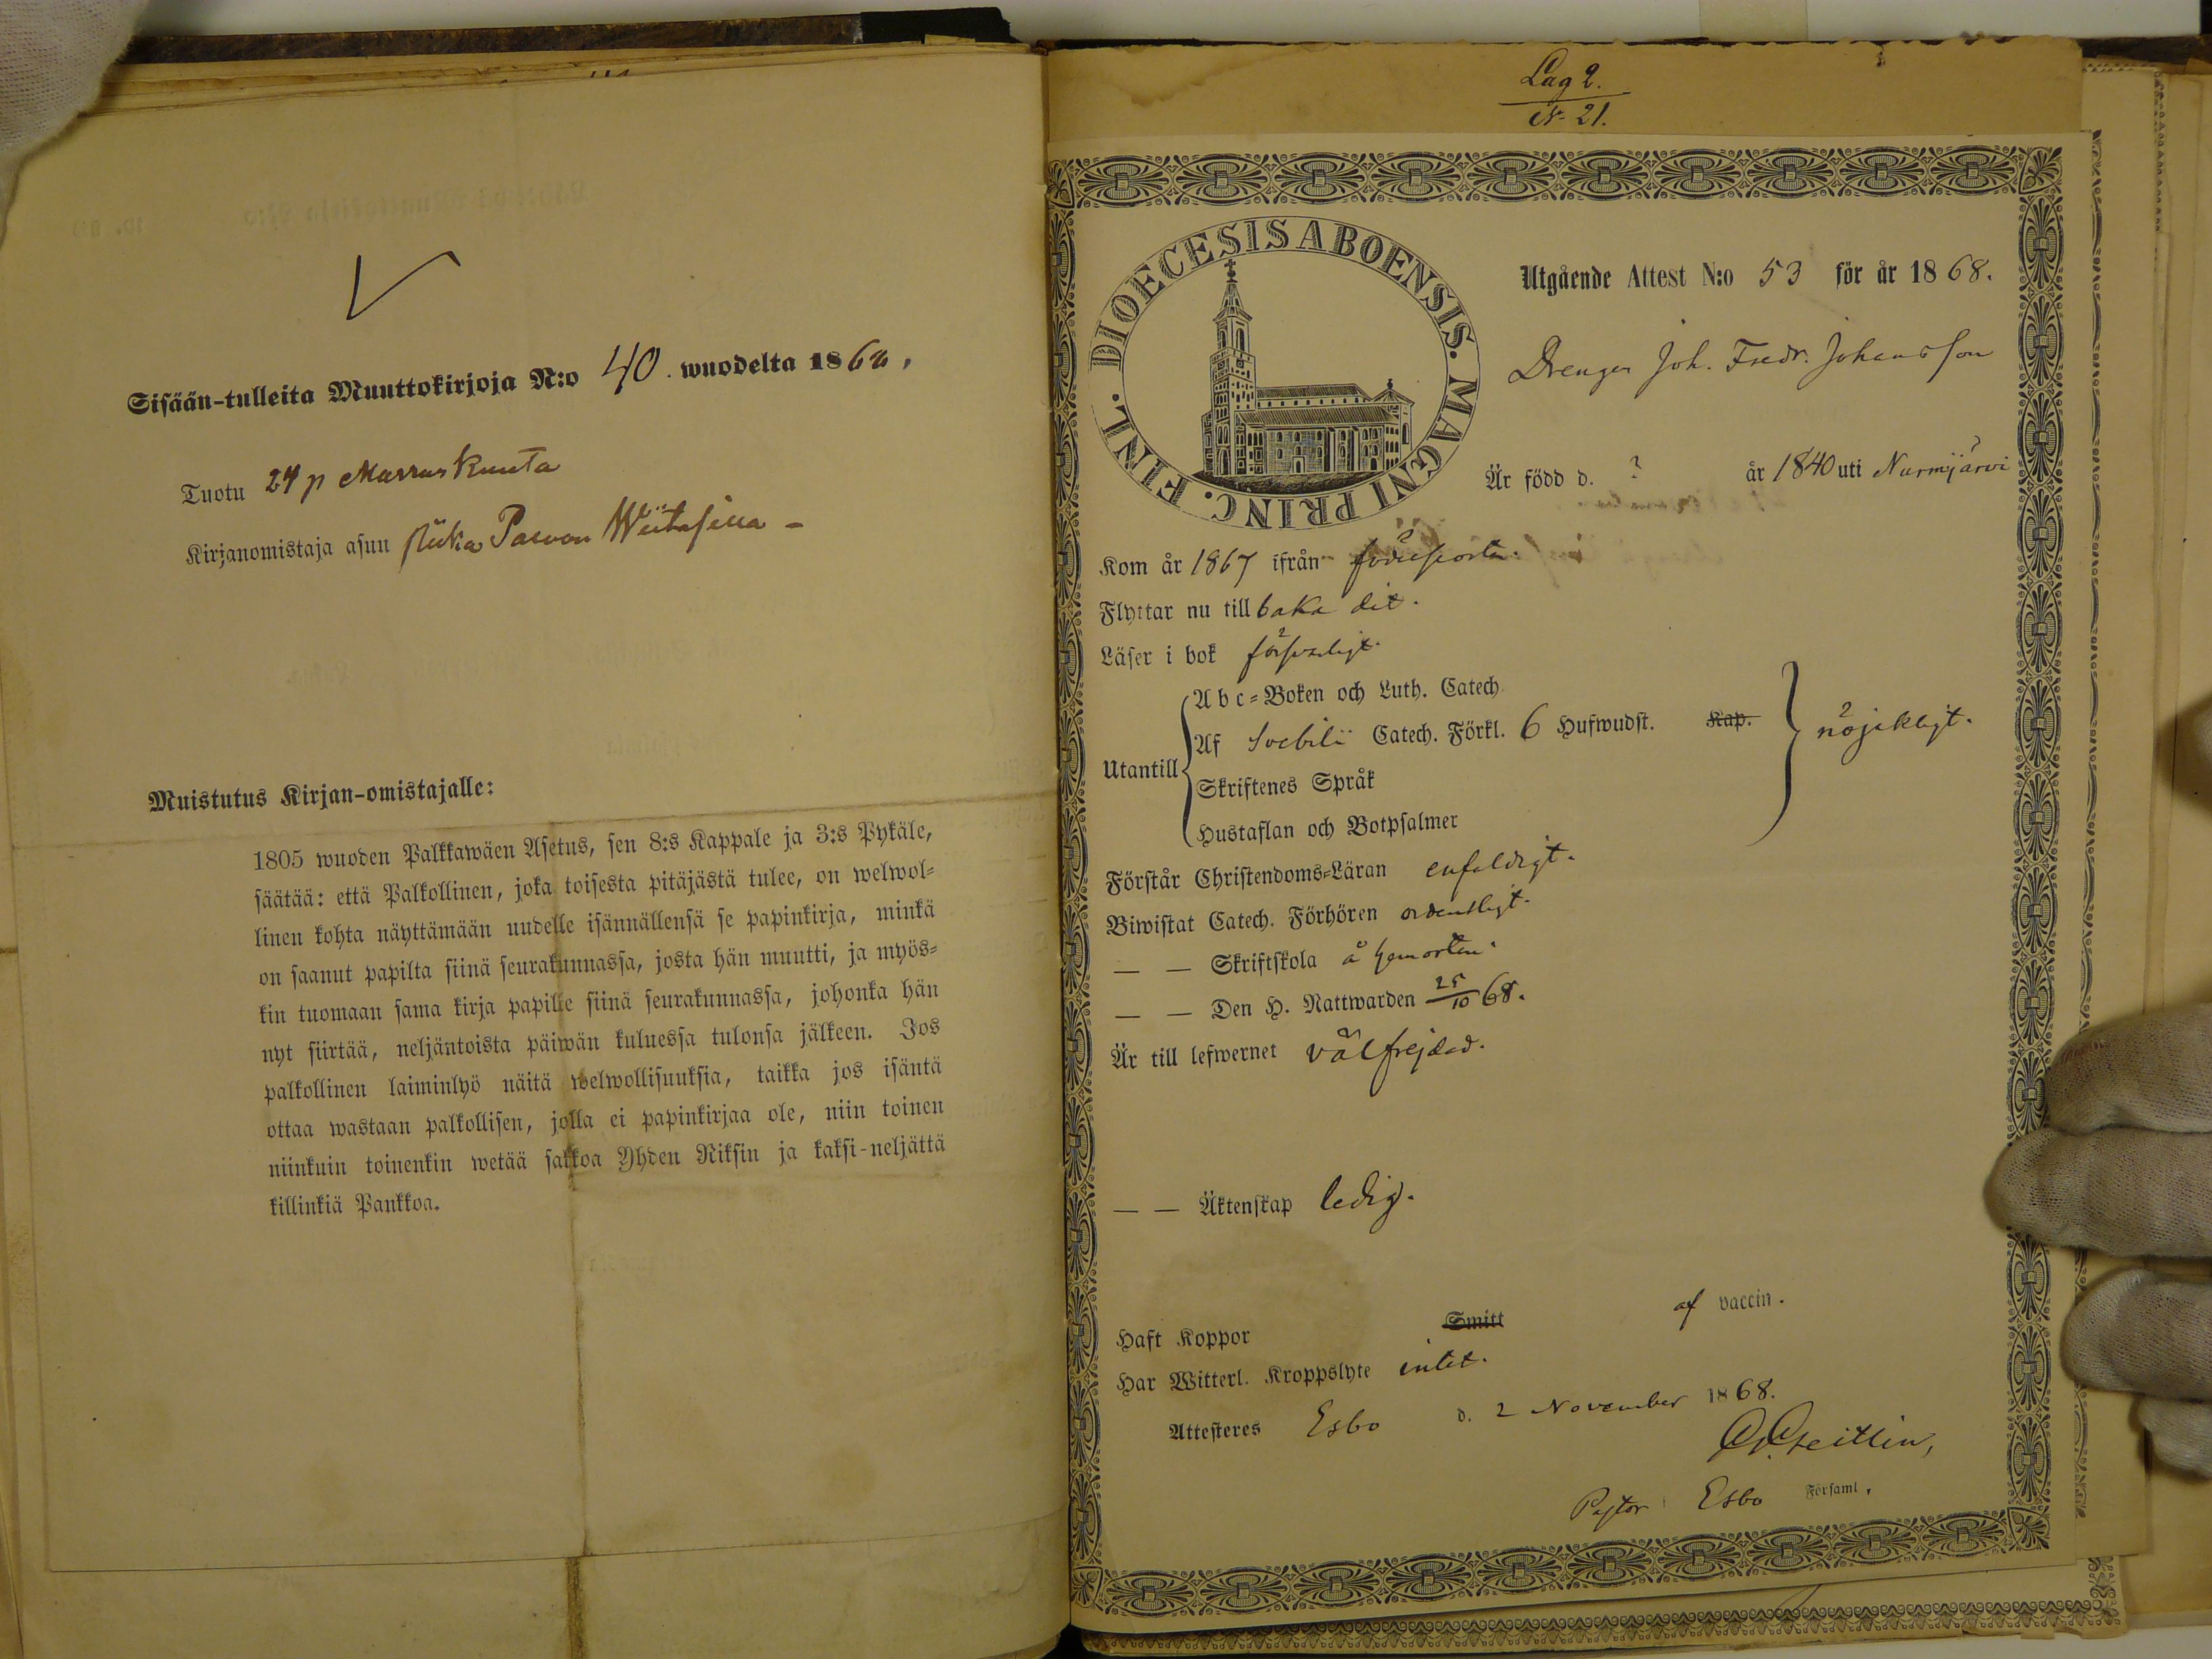 Sisään-tulleita Muuttokirjoja N:o 40. wuodelta 1868,
Tuotu 24 p Marraskuuta
Kirjanomistaja asuu
Muistutus Kirjan-omistajalle:
1805 wuoden Palkkawäen Asetus, sen 8:s Kappale ja 3:s Pykäle,
säätää: että Palkollinen, joka toisesta pitäjästä tulee, on welwol-
linen kohta näyttämään uudelle isännällensä se papinkirja, minkä
on saanut papilta siinä seurakunnassa, josta hän muutti, ja myös-
kin tuomaan sama kirja papille siinä seurakunnassa, johonka hän
nyt siirtää, neljäntoista päiwän kuluessa tulonsa jälkeen. Jos
palkollinen laiminlyö näitä welwollisuuksia, taikka jos isäntä
ottaa wastaan palkollisen, jolla ei papinkirjaa ole, niin toinen
niinkuin toinenkin wetää sakkoa Yhden Riksin ja kaksi-neljättä
killinkiä Pankkoa.
Lag 2.
N. 21.
DIOECESIS ABOENSIS. MAGNI PRINC. FINL.
Utgående Attest N:o 53 för år 1868.
Drengen Joh. Fredr. Johansson
Är född d. ? år 1840 uti Nurmijärvi
Kom år 1867 ifrån födelseorten.
Flyttar nu till baka dit.
Läser i bok försvarligt.
Abc-Boken och Luth. Catech
Af Svebilii Catech. Förkl. 6 Hufwudst. Kap.
Utantill
nöjaktligt.
Skriftenes Språk
Hustaflan och Botpsalmer
Förstår Christendoms-Läran enfaldigt.
Biwistat Catech. Förhören ordentligt.
— — Skriftskola å hemorten.
— — Den H. Nattwarden 25/10 68.
Är till lefwernet välfrejdad.
— — Äktenskap ledig.
Haft Koppor Smitt af vaccin.
Har Witterl. Kroppslyte intet.
Attesteres Esbo d. 2 November 1868.
Pastor Esbo Församl.